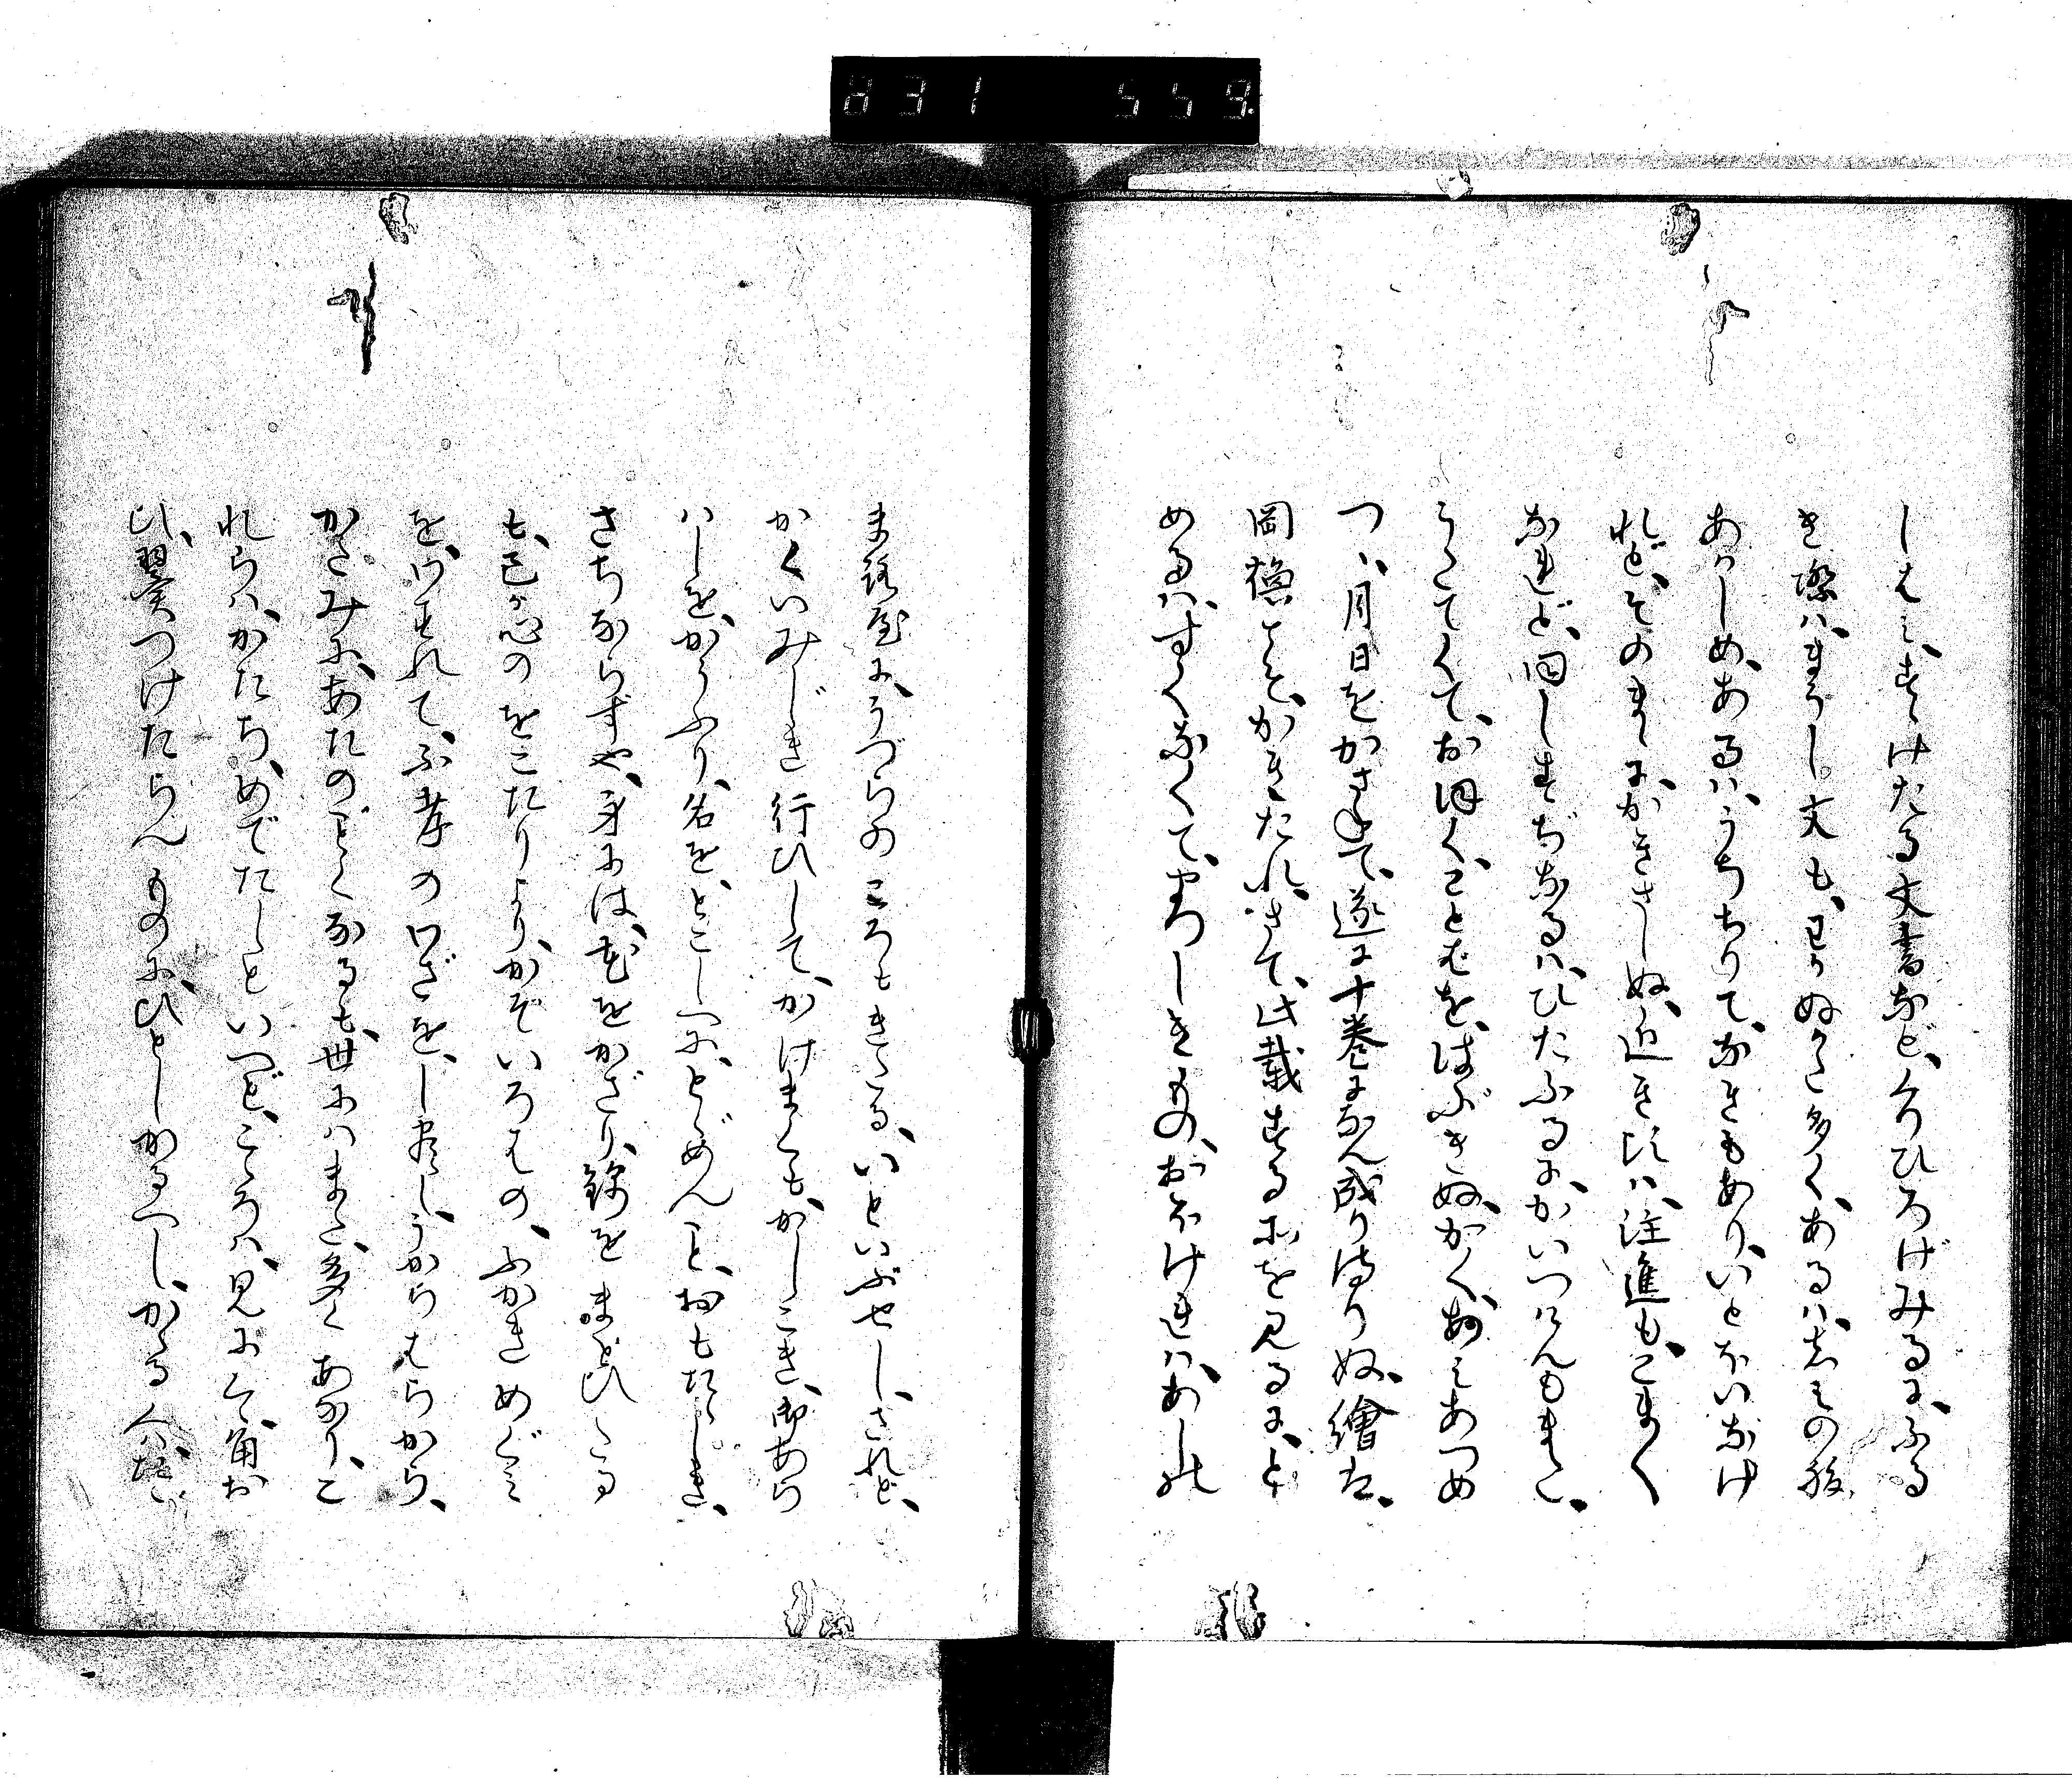 しもみ、すゝけたる文書など、くりひろげみるに、ふる
き際は、まうし文も、もらしぬると多く、あるはきえの殘
あかしめ、あるは、うちちりて、なきもあり、いとほいなけ
れど、そのまゝにかきさしぬ、近き頃は、注進も、こまく
なれど、同しすぢなるは、ひたふるに、かいつけんもまた、
うたてくて、おほく、ことばを、はぶきぬ、かく、あみあつめ
つゝ、月日をかさねて、遂に十巻になん成り侍りぬ、繪は、
岡穏さと、かきたれ、さて、此載するふを見るに、と
めるは、すくなくて、まつしきもの、おほければ、あしの
ま路屋に、うづらのころもきたる、いといぶせし、されど、
かくいみじき行ひして、かけまくも、かしこき、御あら
はしを、かうふり、名を、とこしへに、とゞめんこと、おもたゝしき、
さちならずや、身には、花をかざり、錦をまとひたる
も、己が心のをこたりより、かぞいろはの、ふかきめぐみ
を、わすれて、ふ孝のわざを、し盡し、うからはらから、
かたみに、あたのごとくなるも、世にはまた、多くあなり、こ
れらは、かたち、めでたしといへど、こゝろは、見にくゝ、角お
ひ、翼つけたらんものに、ひとしかるへし、かゝる人は、